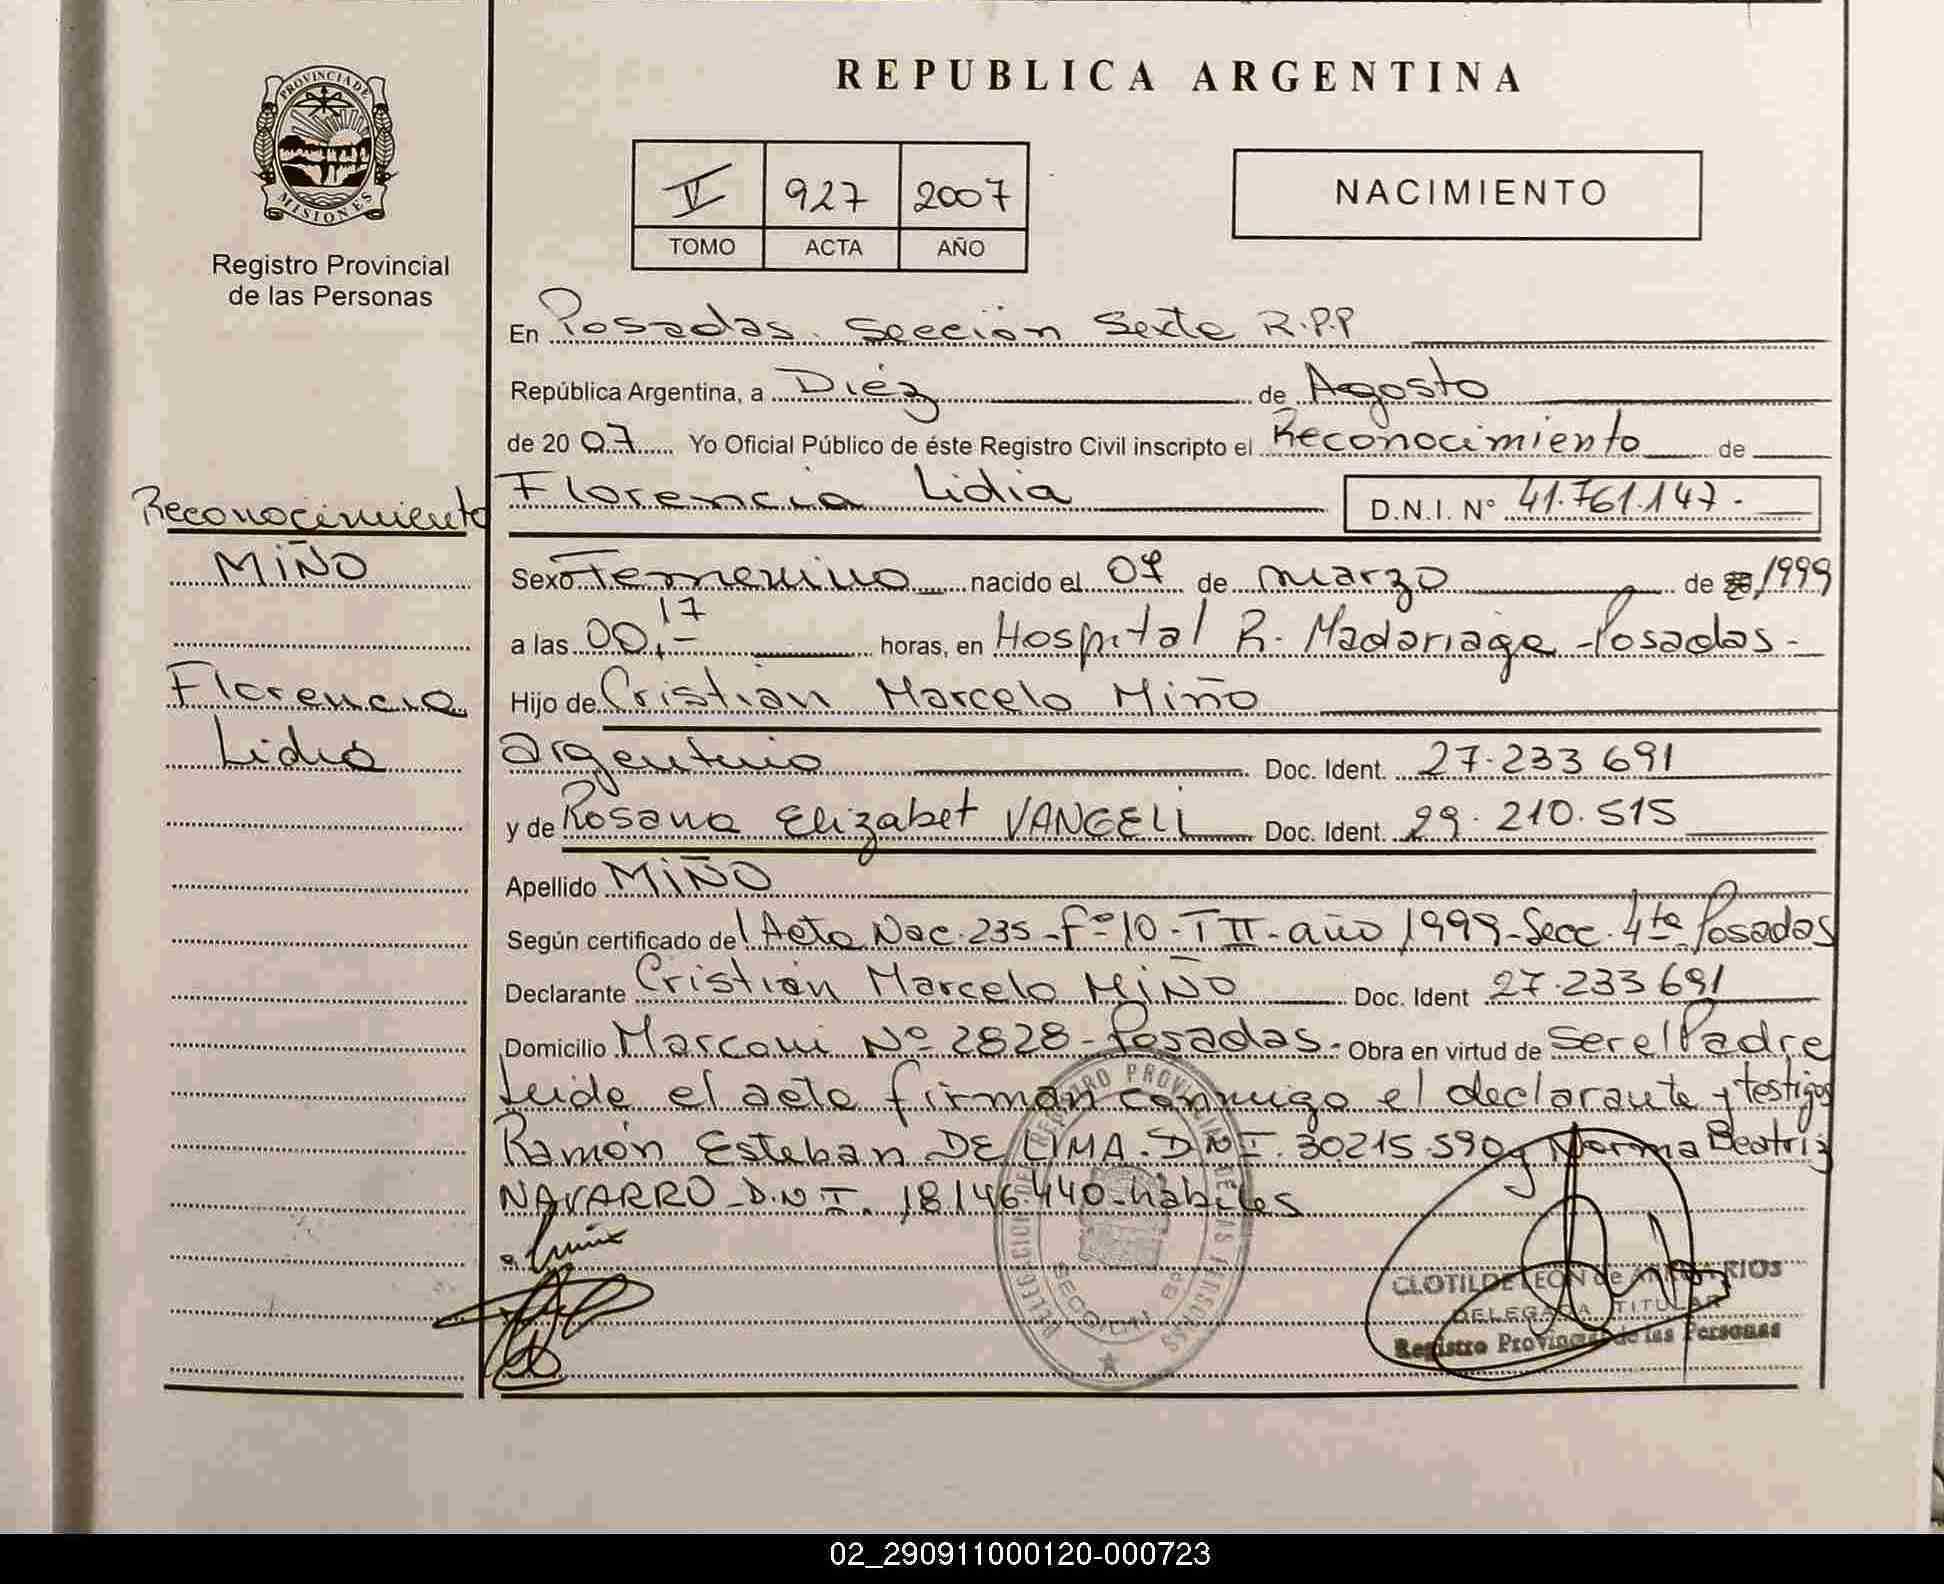 PROVINCIA DE
MISIONES
Registro Provincial
de las Personas
REPUBLICA ARGENTINA
V 927 2007
TOMO ACTA AÑO
NACIMIENTO
En Posadas. Sección Sexta R.P.P
República Argentina, a Diéz de Agosto
de 20 07 Yo Oficial Público de éste Registro Civil inscripto el Reconocimiento de
Florencia Lidia D.N.I. Nº 41.761.147.-
Reconocimiento
MIÑO
Florencia
Lidia
Sexo Femenino nacido el 07 de marzo de 1999
a las 00,17 horas, en Hospital R. Madariaga - Posadas -
Hijo de Cristian Marcelo Miño
argentino Doc. Ident. 27.233 691
y de Rosana Elizabet VANGELI Doc. Ident. 29.210.515
Apellido MIÑO
Según certificado de Acta Nac. 235 - Fº 10 - T II - año 1999 - Secc. 4ta Posadas
Declarante Cristian Marcelo MIÑO Doc. Ident 27.233 691
Domicilio Marconi Nº 2828 - Posadas. Obra en virtud de Ser el Padre
Leida el acta firman conmigo el declarante y testigos
Ramón Esteban DE LIMA. D.N.I. 30215.590 y Norma Beatriz
NAVARRO - D.N.I. 18.146.440 - hábiles
REGISTRO PROVINCIAL DE LAS PERSONAS
CLOTILDE LEON de
DELEGADA TITULAR
Registro Provincial de las Personas
02_290911000120-000723